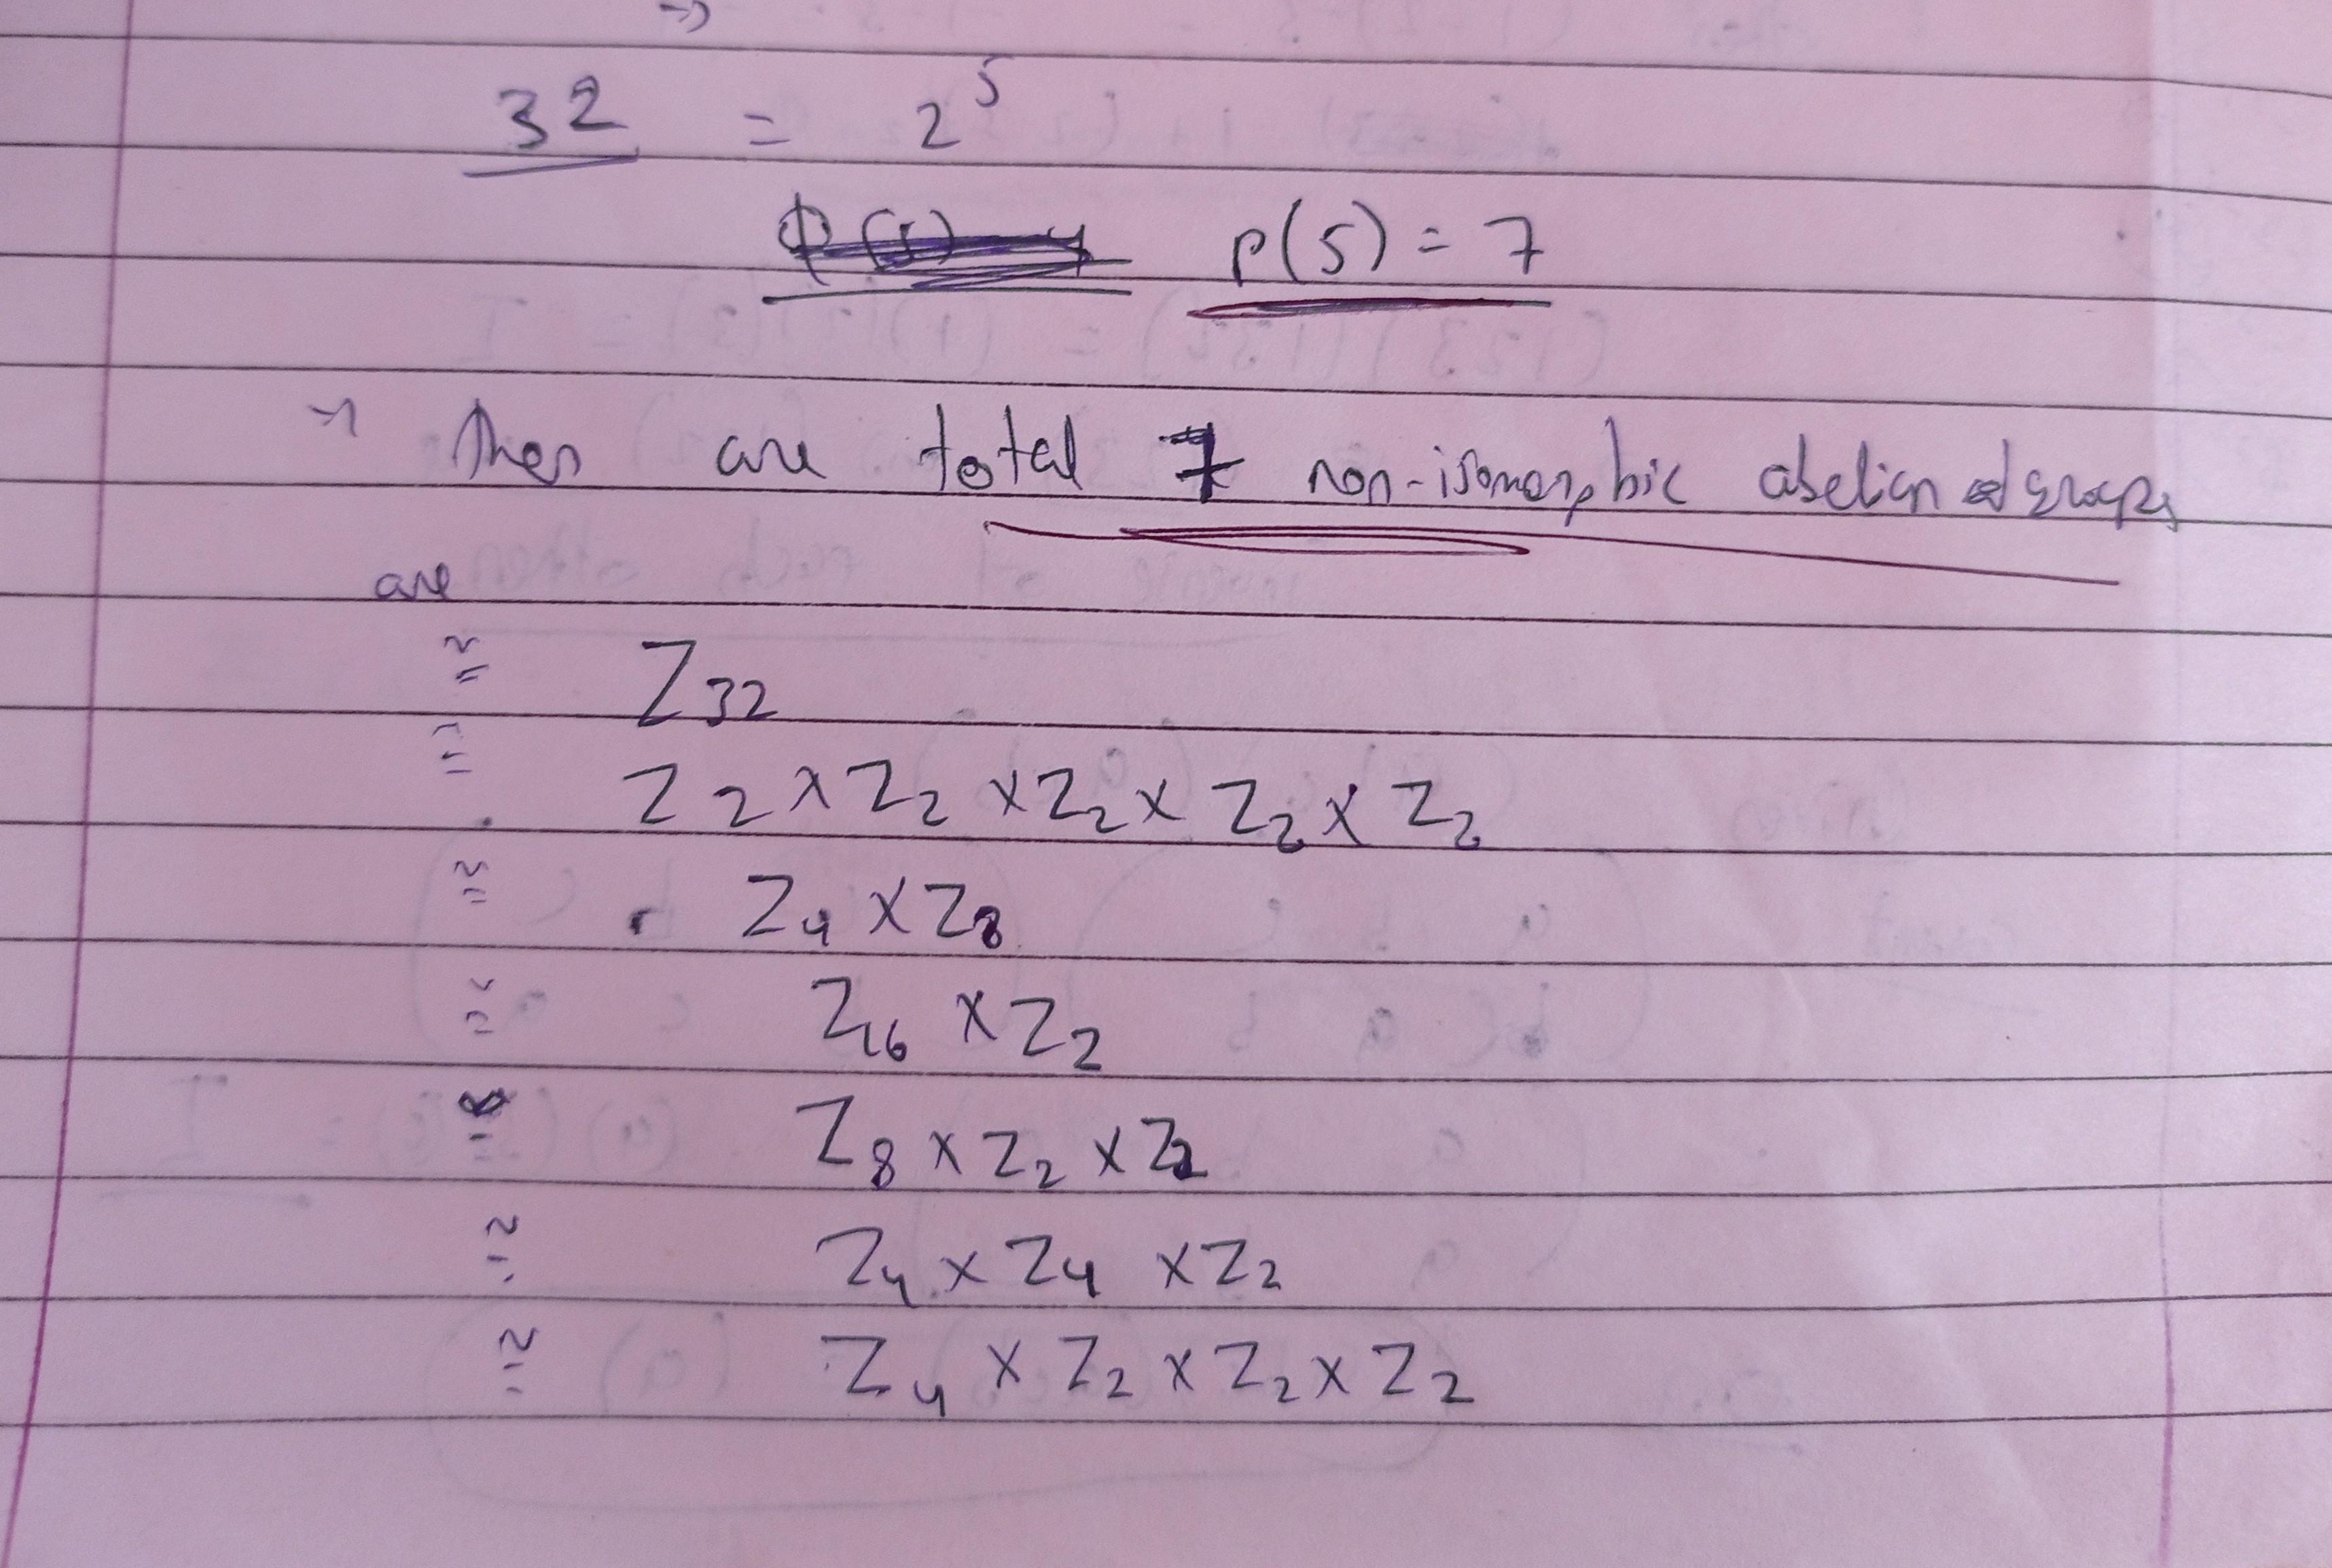 →
32 = 2^5
p(5) = 7
→ Ther are total 7 non-isomorphic abelian groups
are
≅ Z_32
≅ Z_2 × Z_2 × Z_2 × Z_2 × Z_2
≅ Z_4 × Z_8
≅ Z_16 × Z_2
≅ Z_8 × Z_2 × Z_2
≅ Z_4 × Z_4 × Z_2
≅ Z_4 × Z_2 × Z_2 × Z_2